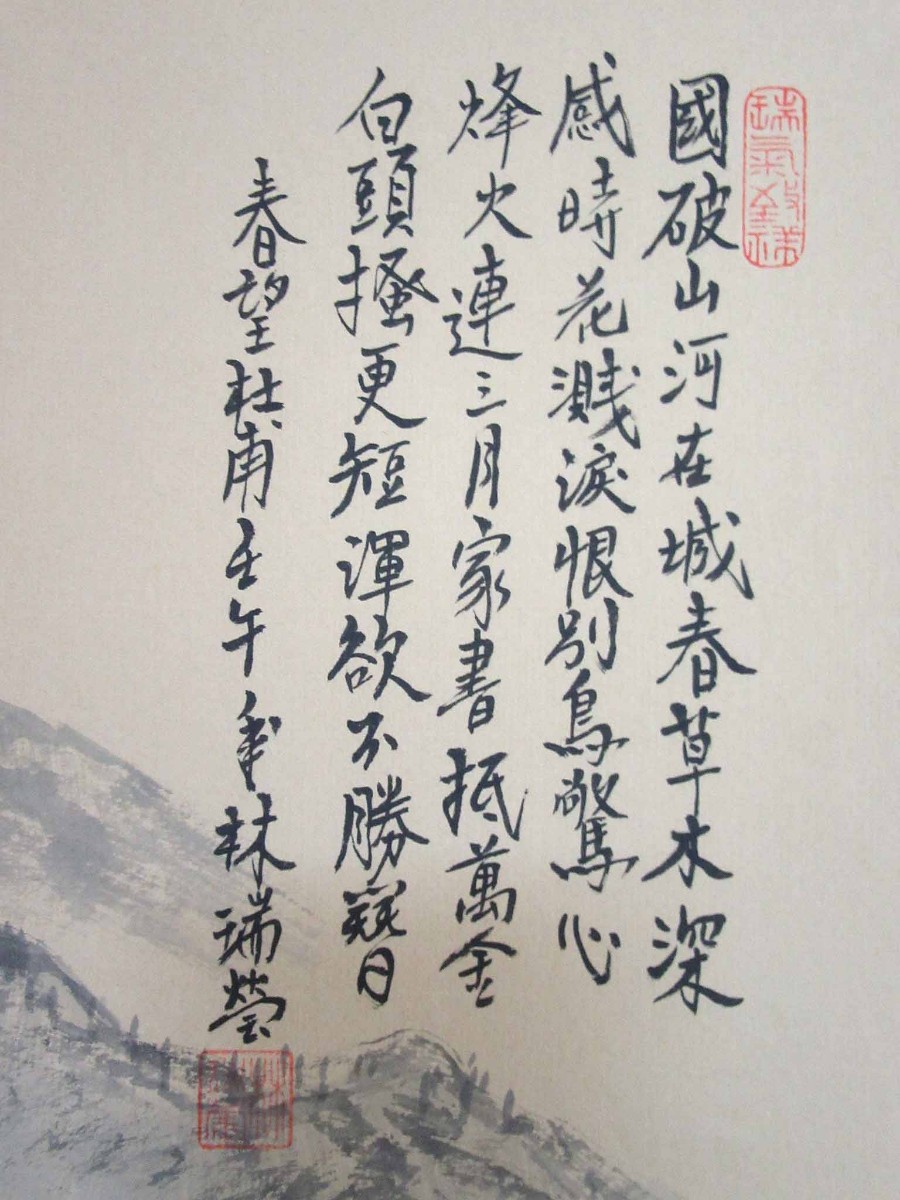 國破山河在城春草木深
感時花濺淚恨別鳥驚心
烽火連三月家書抵萬金
白頭搔更短渾欲不勝簪
春望杜甫壬午年林瑞瑩